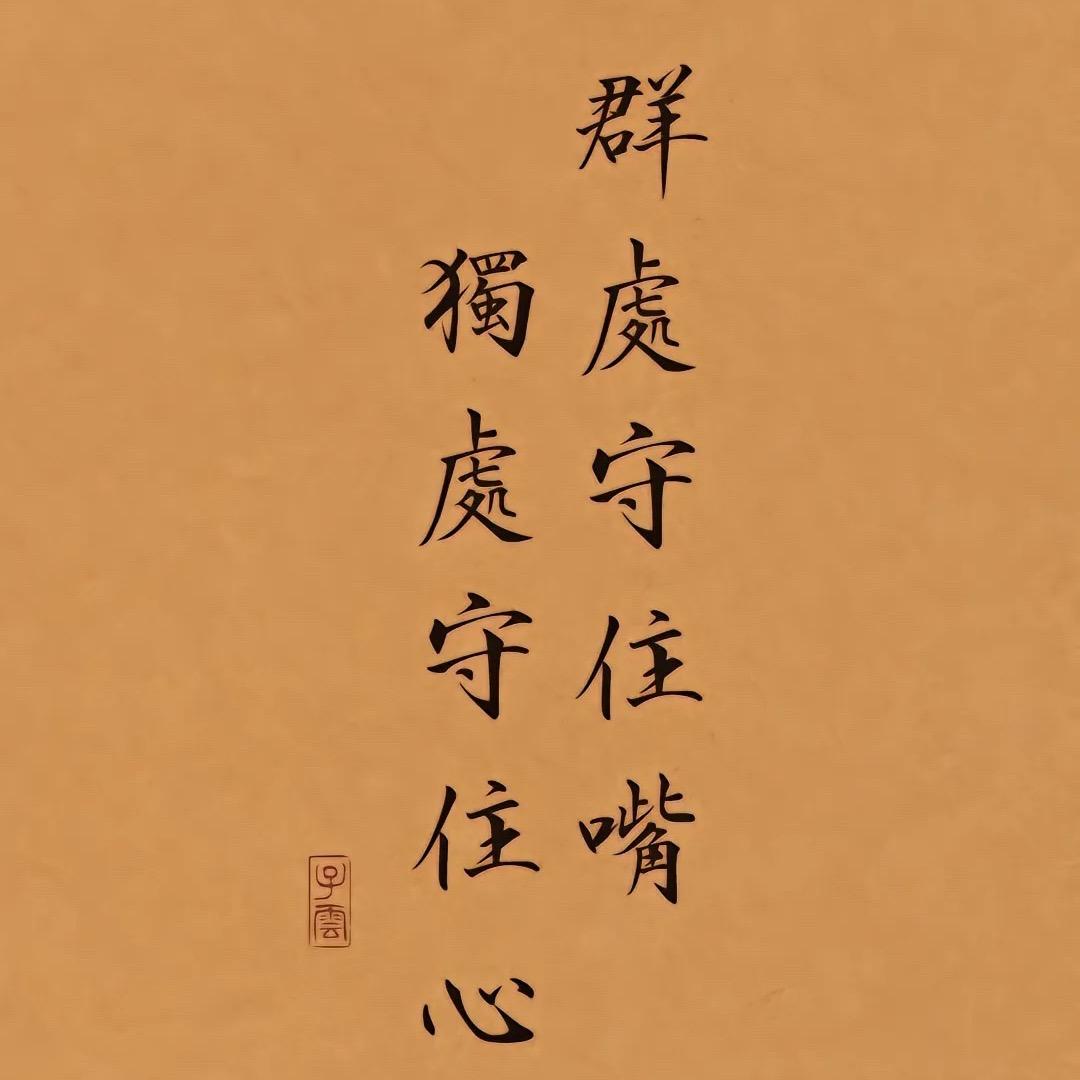 群處守住嘴
獨處守住心
子雲